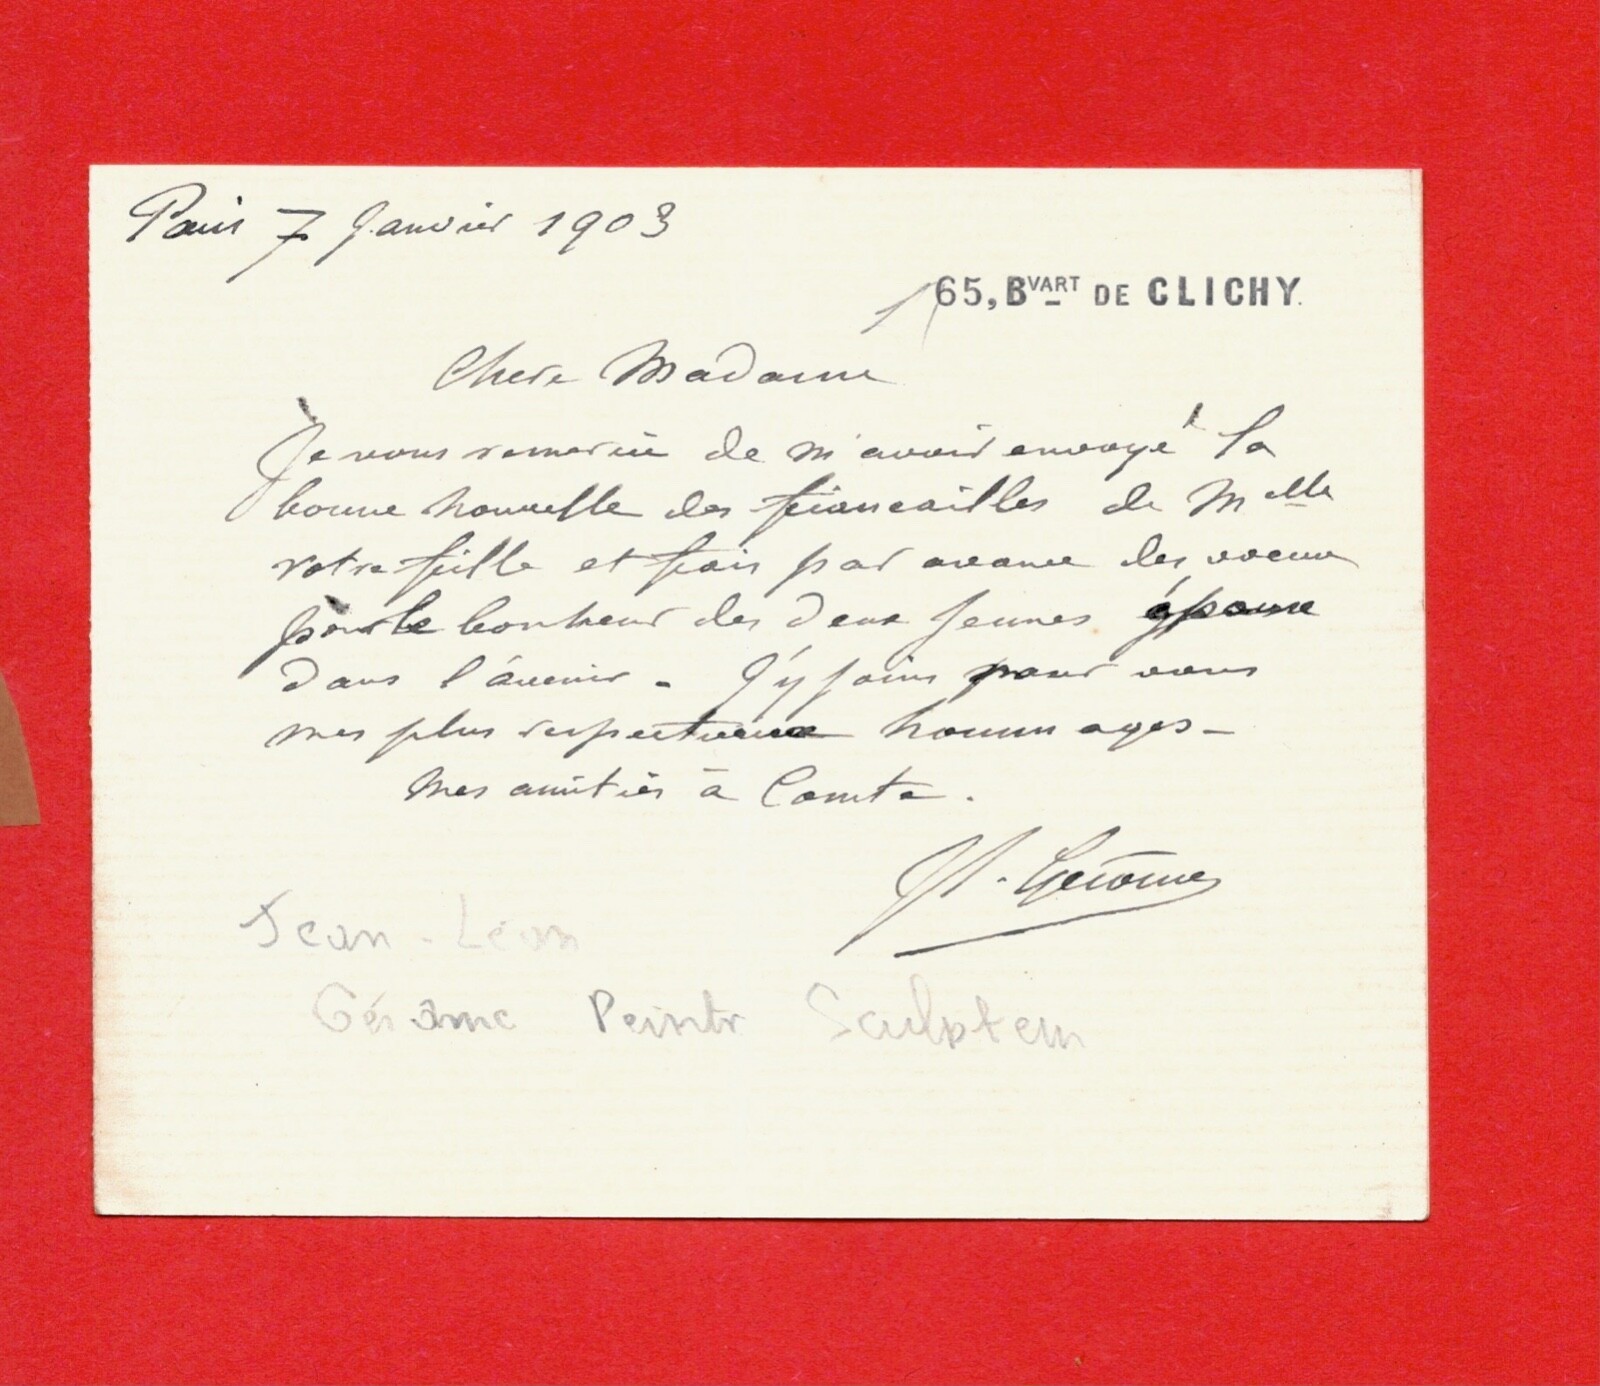 Paris 7 Janvier 1903
65, BVART DE CLICHY.
Chere Madame
Je vous remercie de m'avoir envoyé la
bonne nouvelle des fiancailles de Melle
votre fille et fais par avance des voeux
pour le bonheur des deux jeunes époux
dans l'avenir - J'y joins pour vous
mes plus respectueux hommages -
Mes amitiés à Comte.
JL. Gerôme
Jean-Léon
Gérôme Peintr Sculpteur